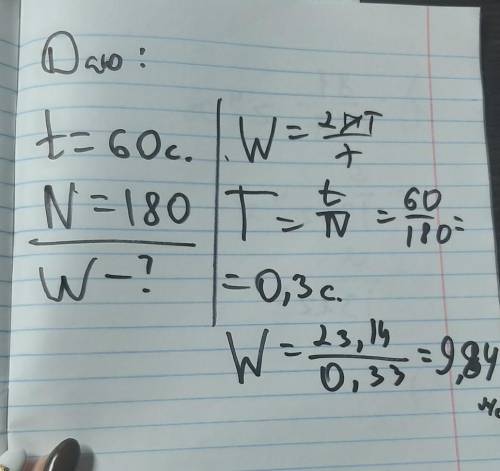 Дано:
t = 60 с.
N = 180
W - ?
W = 2π / T
T = t / N = 60 / 180 =
= 0,3 с.
W = 2 3,14 / 0,33 = 9,84